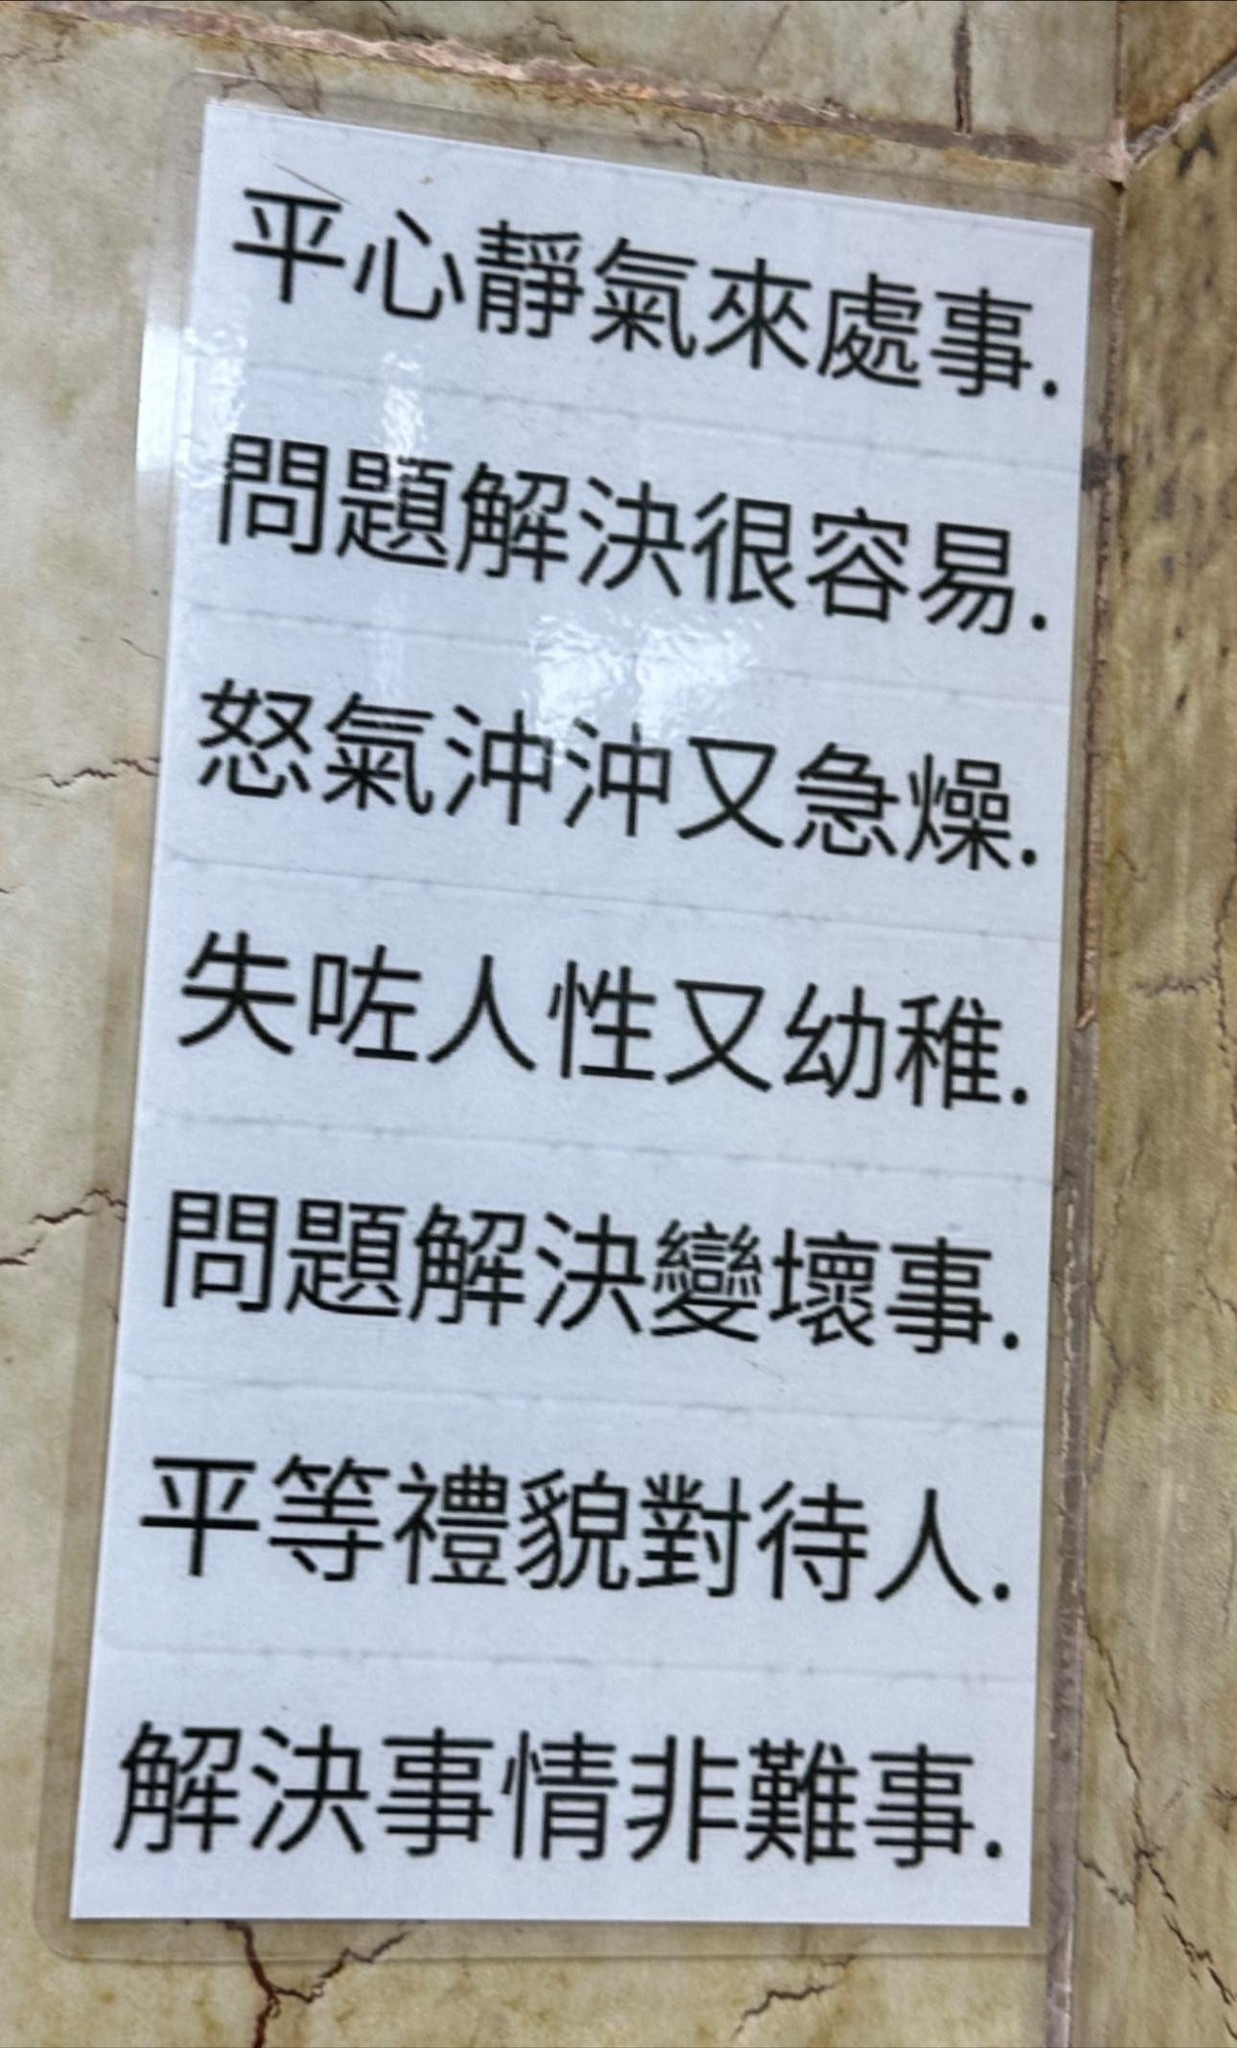 平心靜氣來處事.
問題解決很容易.
怒氣沖沖又急燥.
失咗人性又幼稚.
問題解決變壞事.
平等禮貌對待人.
解決事情非難事.